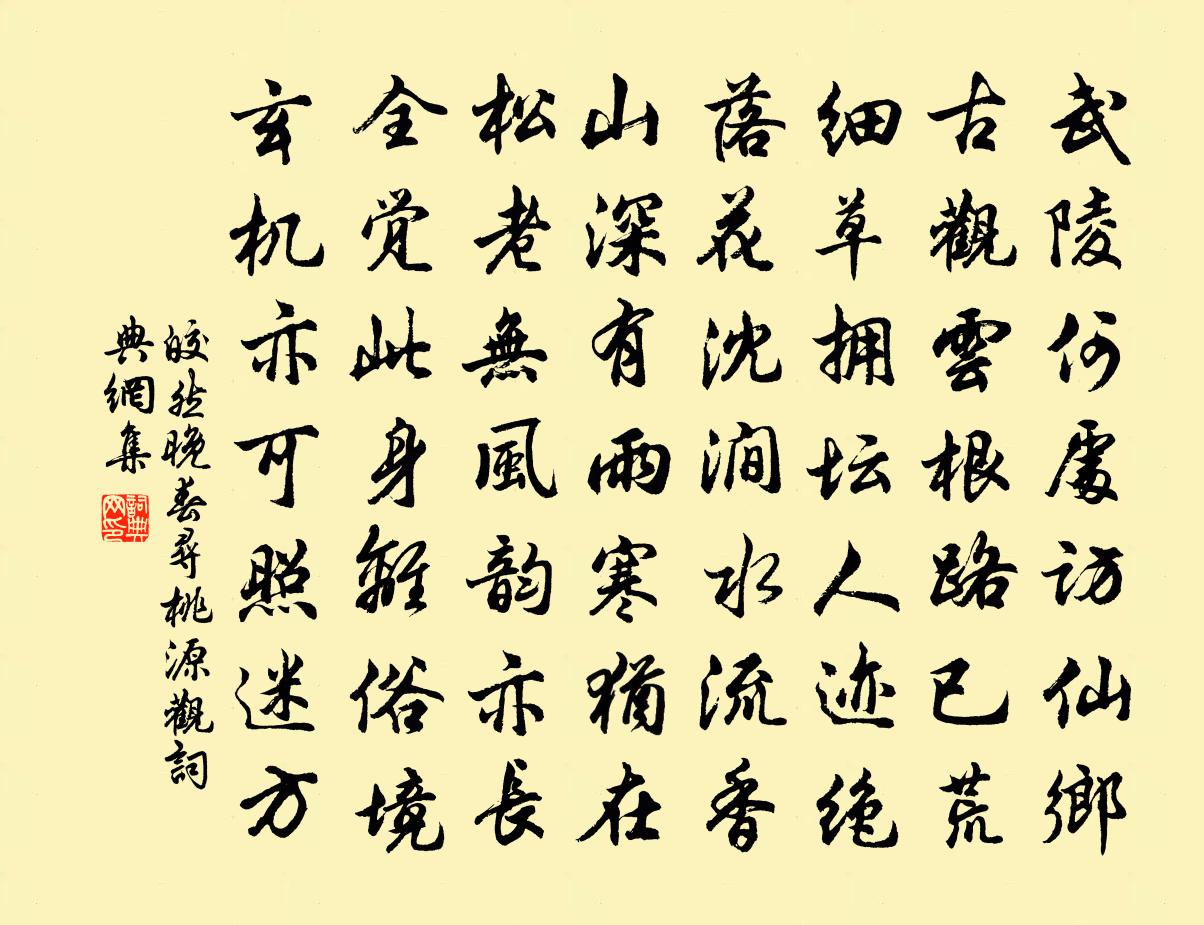 武陵何處訪仙鄉
古觀雲根路已荒
细草拥坛人迹绝
落花沈澗水流香
山深有雨寒猶在
松老無風韵亦長
全觉此身離俗境
玄机亦可照迷方
皎然晚春尋桃源觀詞
典網集
詞典
网印